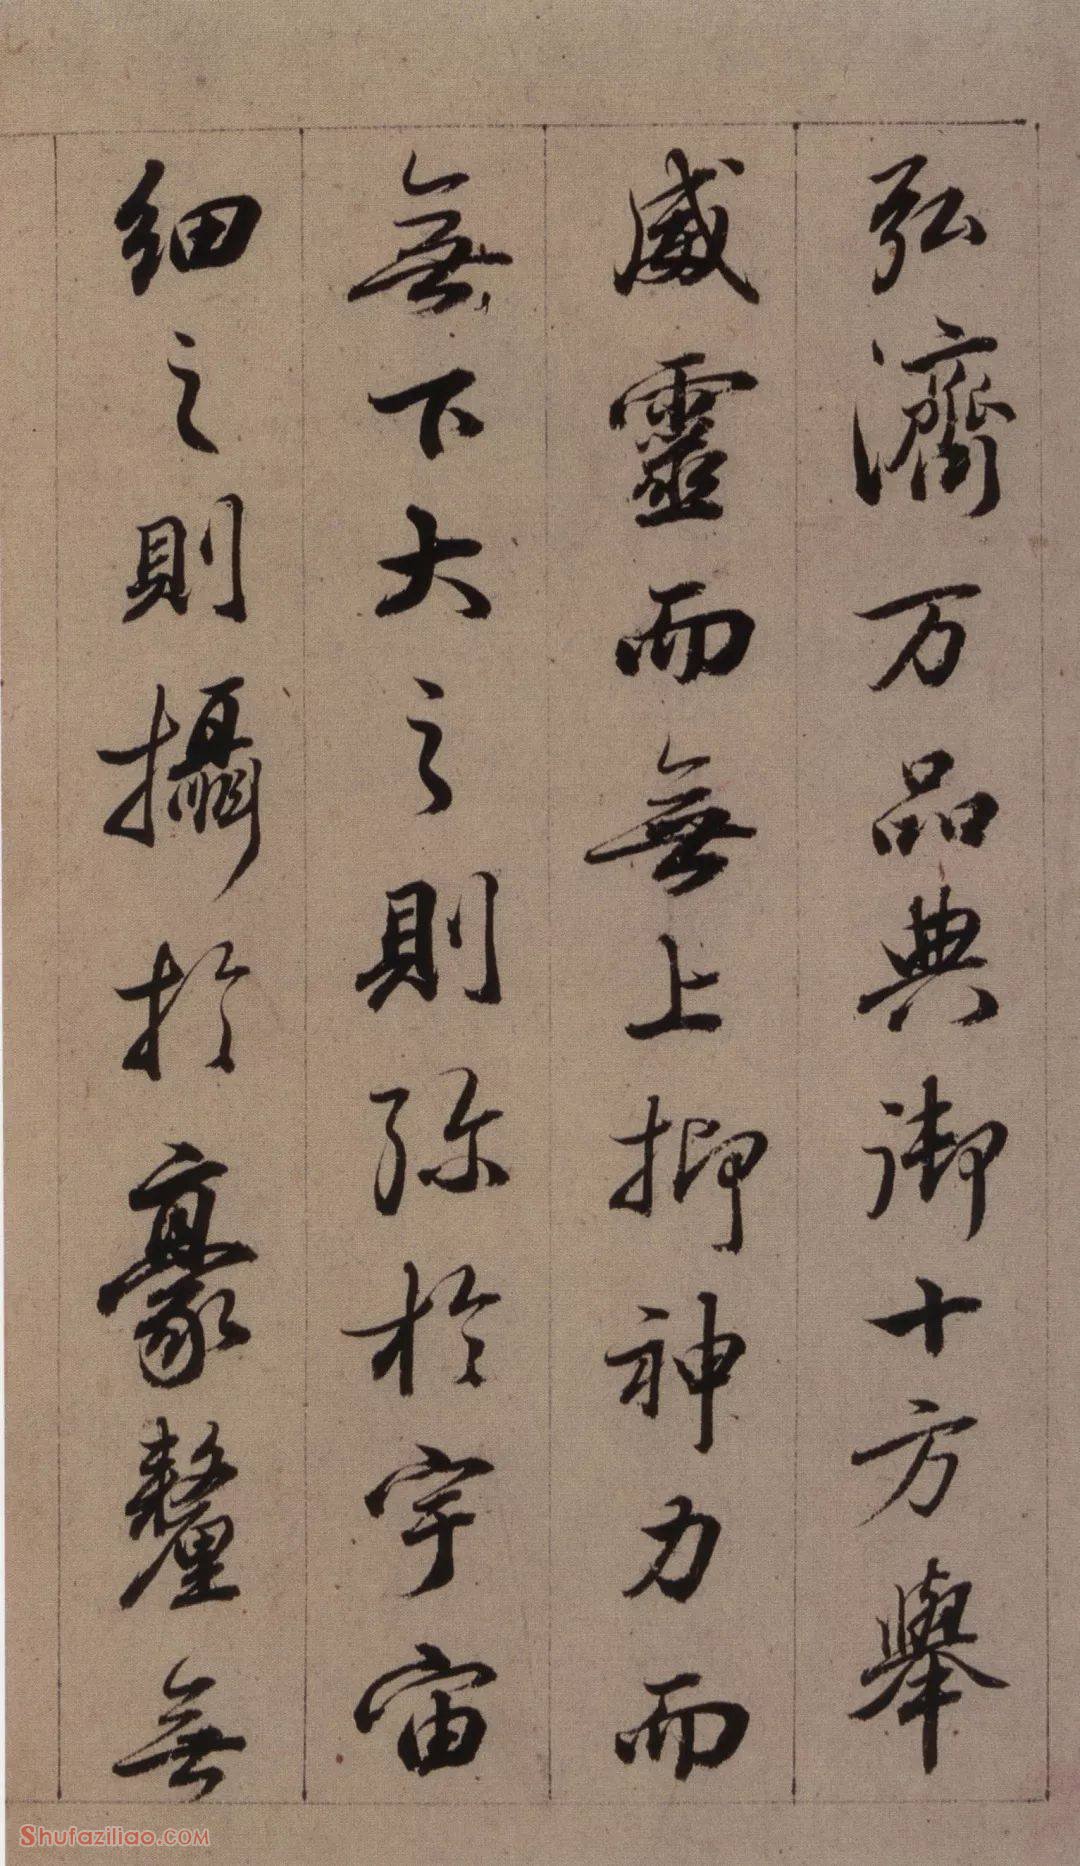 弘濟万品典御十方舉
威靈而無上抑神力而
無下大之則弥於宇宙
細之則攝於豪釐無
Shufaziliao.COM